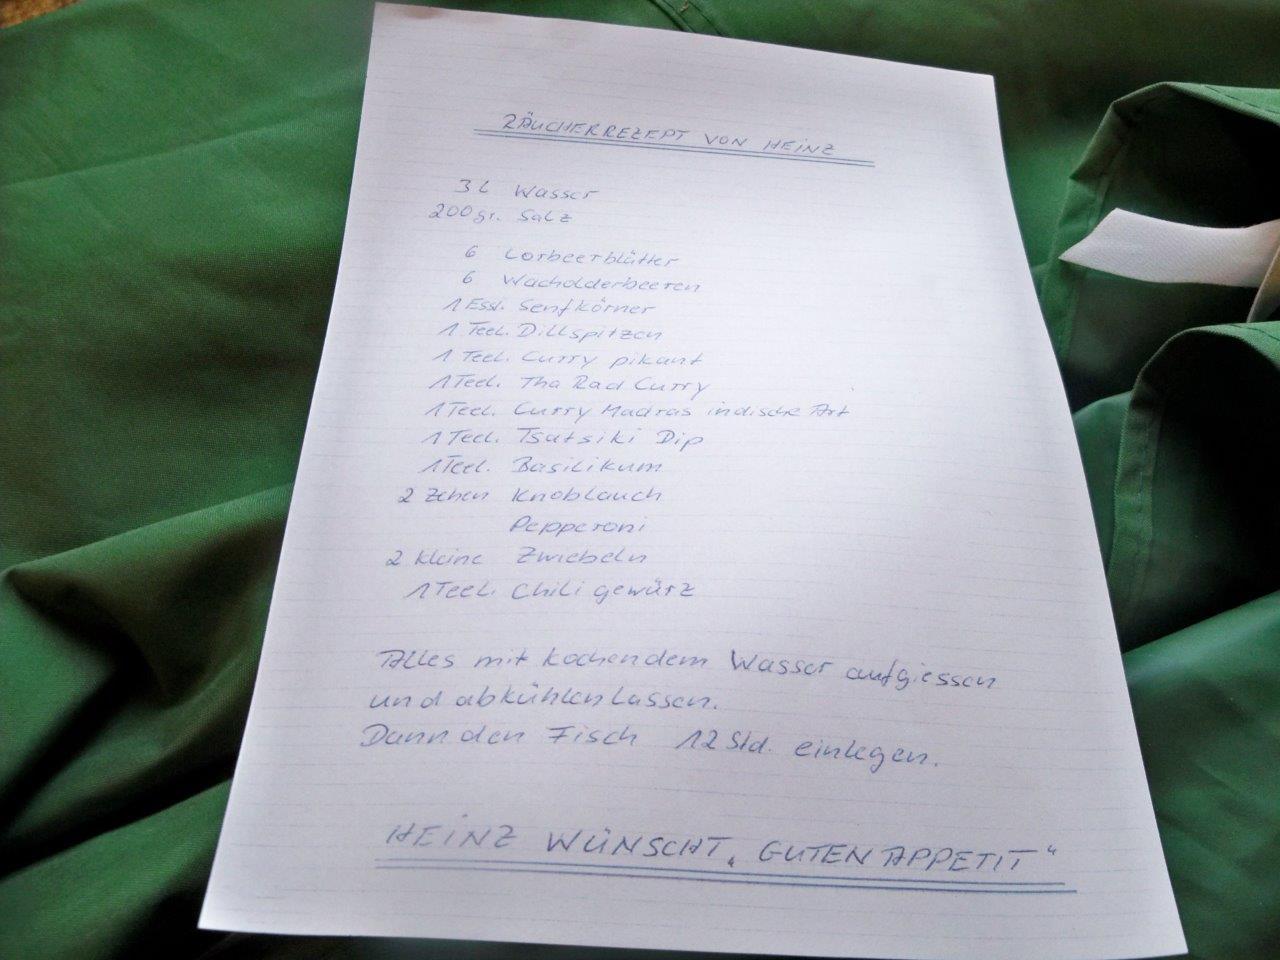 RÄUCHERREZEPT VON HEINZ
3 L Wasser
200 gr. Salz
6 Lorbeerblätter
6 Wacholderbeeren
1 Essl. Senfkörner
1 Teel. Dillspitzen
1 Teel. Curry pikant
1 Teel. Tha Rad Curry
1 Teel. Curry Madras indische Art
1 Teel. Tsatsiki Dip
1 Teel. Basilikum
2 Zehen Knoblauch
Pepperoni
2 kleine Zwiebeln
1 Teel. Chili gewürz
Alles mit kochendem Wasser aufgiessen
und abkühlen lassen.
Dann den Fisch 12 Std. einlegen.
HEINZ WÜNSCHT „GUTEN APPETIT“